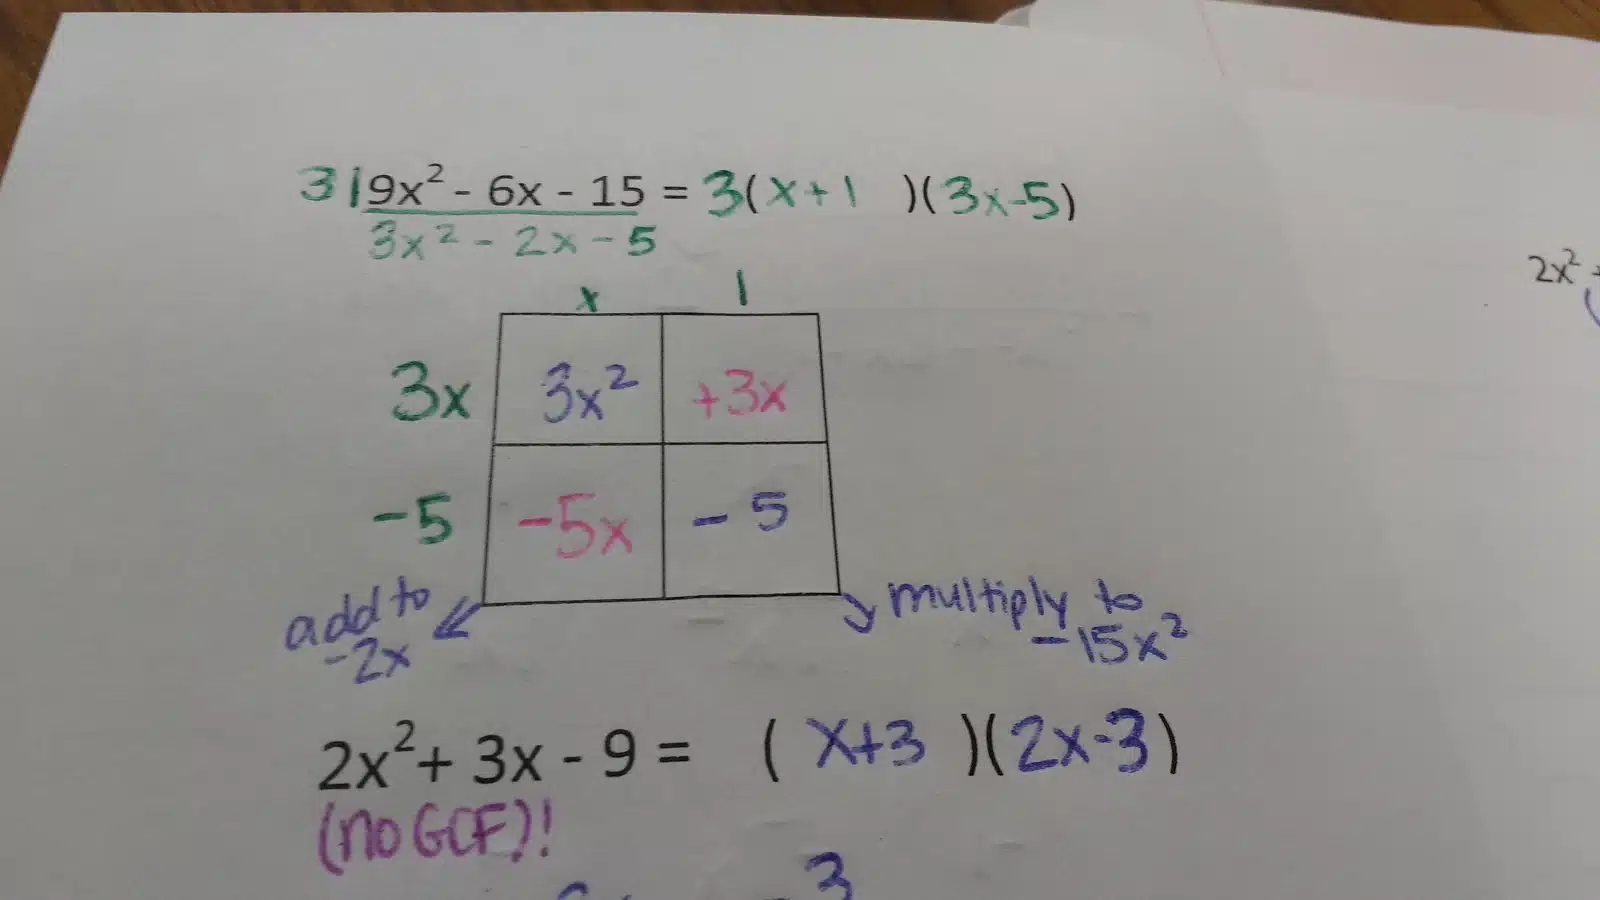 3|9x² - 6x - 15 = 3(x+1 )(3x-5)
3x² - 2x - 5
x 1
3x 3x² +3x
-5 -5x - 5
add to
-2x
multiply to
-15x²
2x² + 3x - 9 = ( x+3 )(2x-3)
(no GCF)!
3
2x²